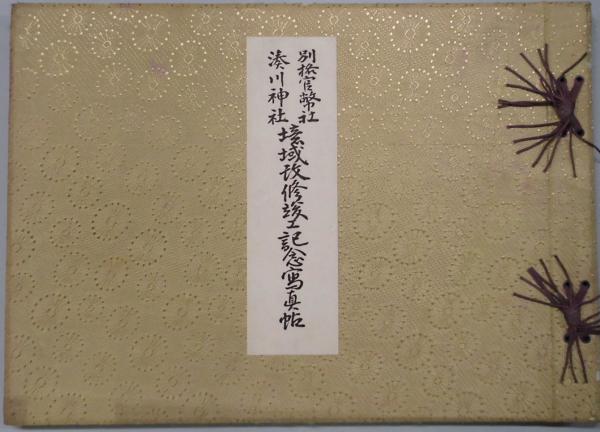 別格官幣社
湊川神社
境域改修竣工記念寫真帖